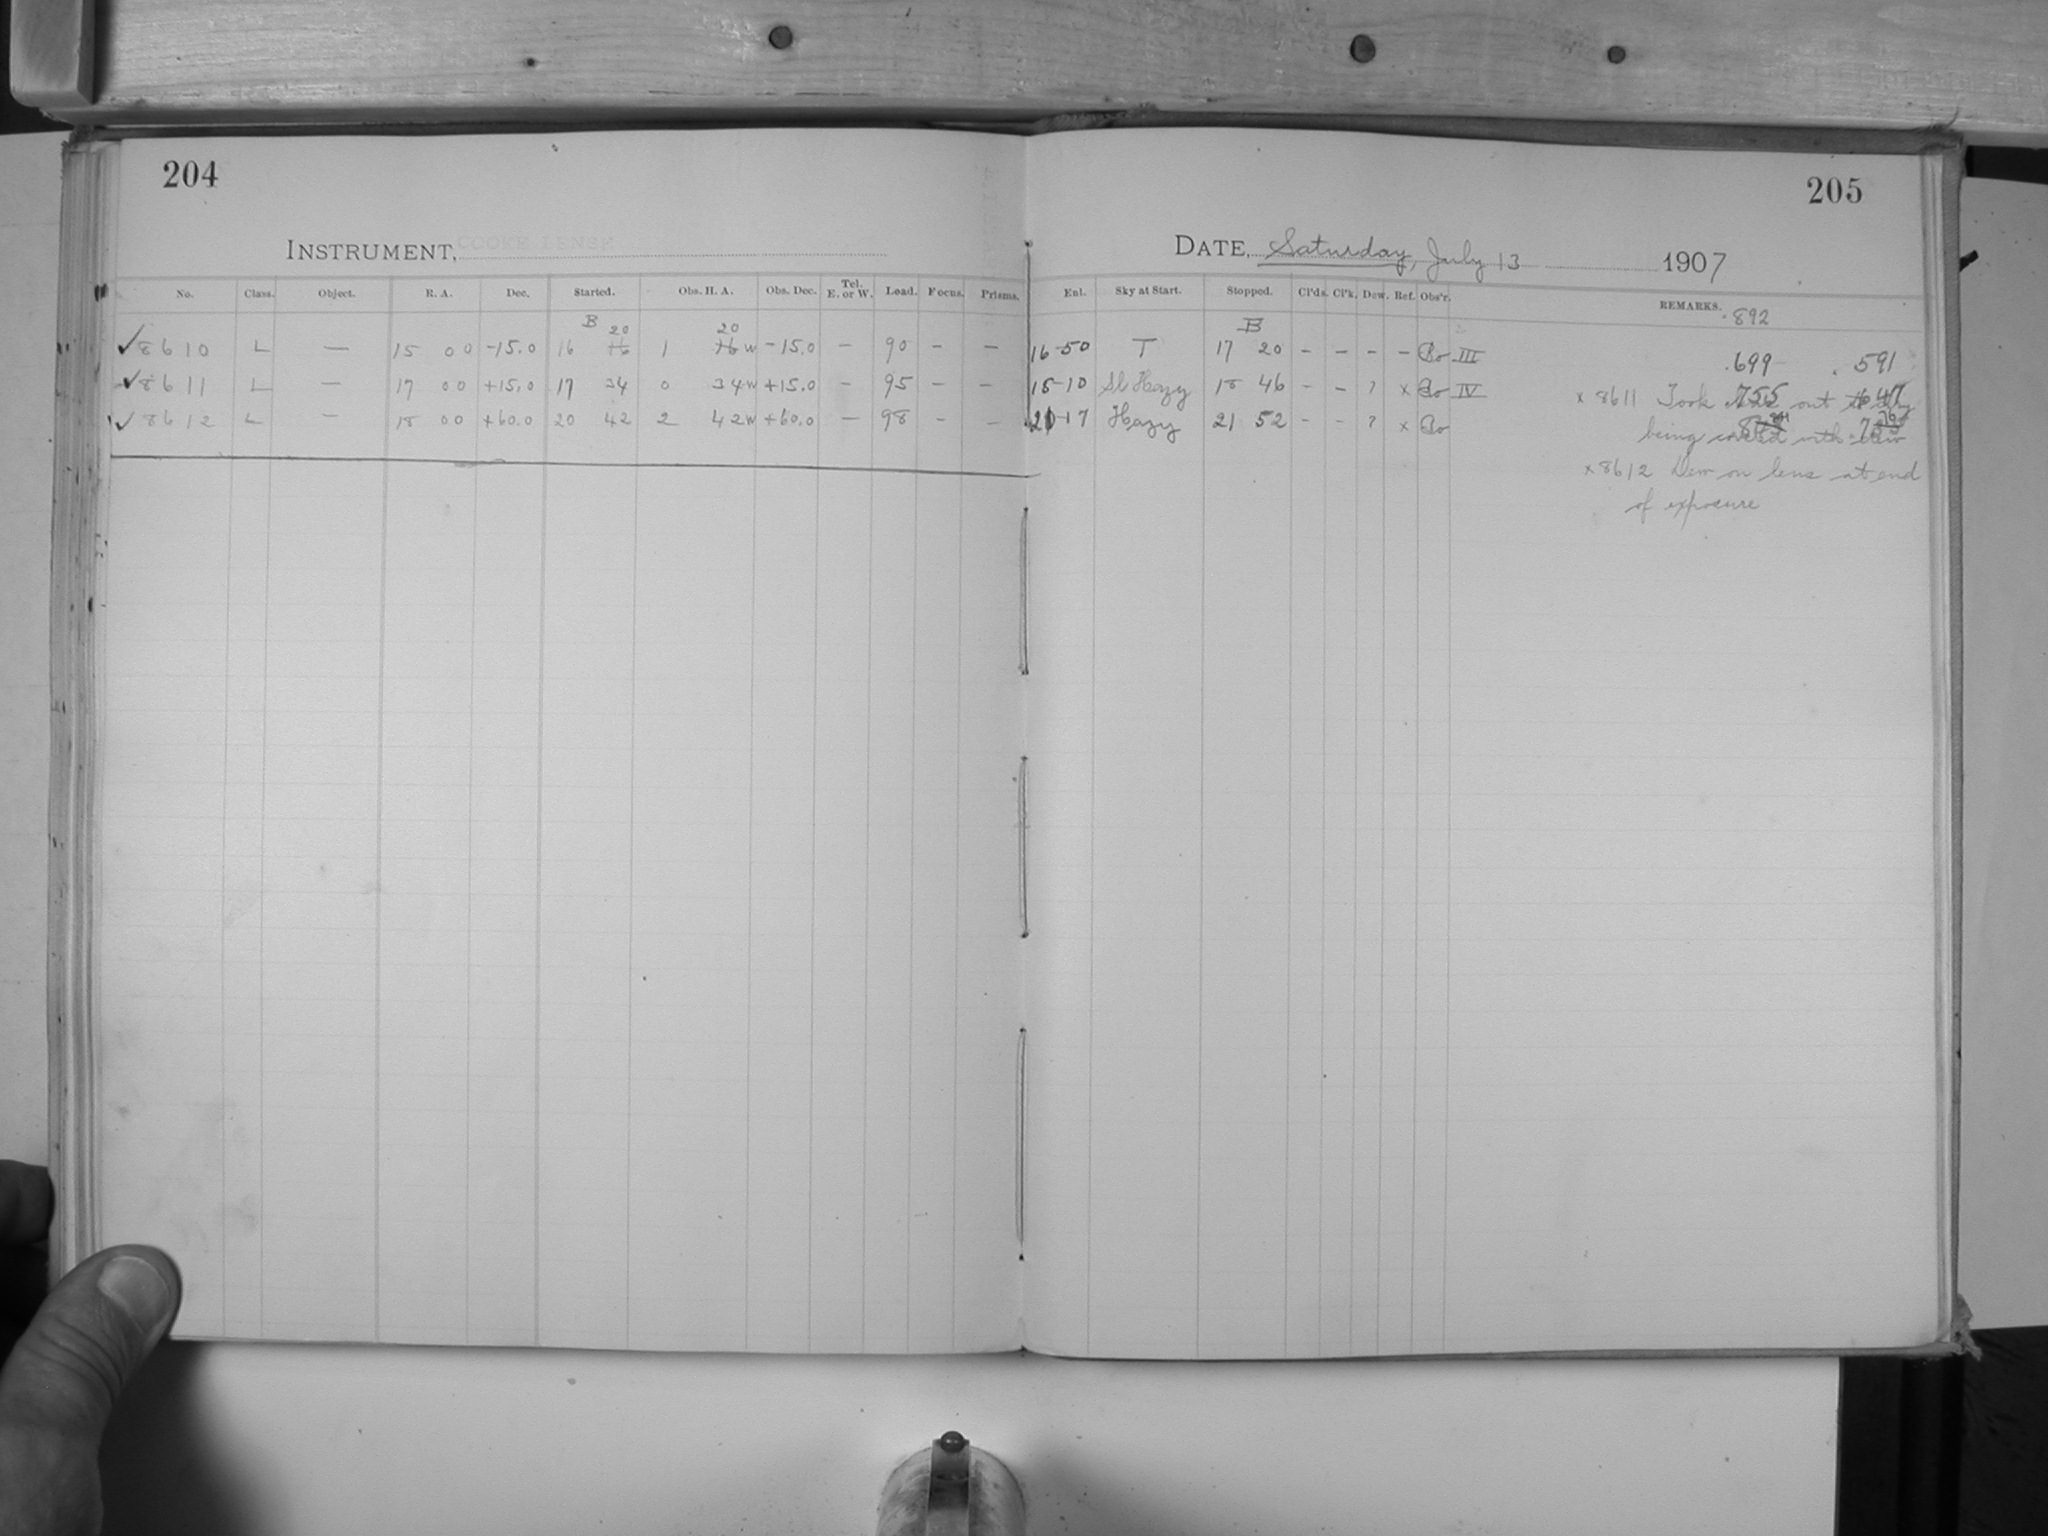 204
205
INSTRUMENT, COOKE LENSE
DATE, Saturday, July 13 1907
No. Class. Object. R. A. Dec. Started. Obs. H. A. Obs. Dec. Tel. E. or W. Load. Focus. Prisms. Enl. Sky at Start. Stopped. Cl'ds. Cl'k. Dew. Ref. Obs'r. REMARKS.
.892
B 20 20 B
✓8610 L — 15 00 -15.0 16 16 1 16 w -15.0 - 90 - - 16-50 T 17 20 - - - - III .699 .591
✓8611 L - 17 00 +15.0 17 34 0 34w +15.0 - 95 - - Sl Hazy 18 46 - - ? x IV x 8611 Took out
✓8612 L - 18 00 +60.0 20 42 2 42w +60.0 - 98 - - 21-17 Hazy 21 52 - - ? x being with dew
x 8612 Dew on lens at end
of exposure